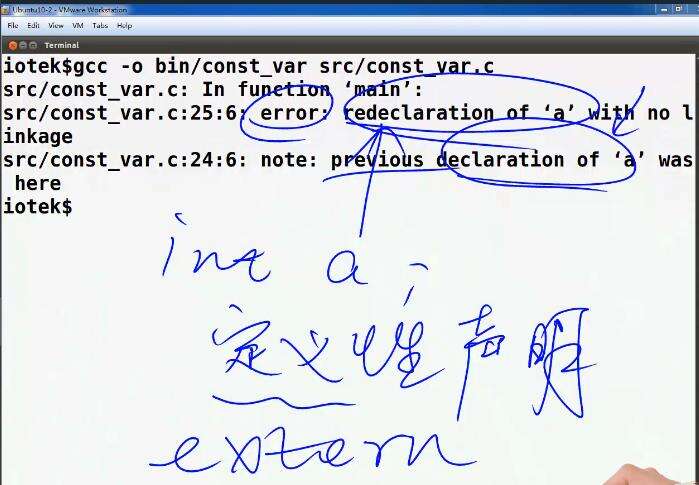 Ubuntu10-2 - VMware Workstation
File Edit View VM Tabs Help
Terminal
iotek$gcc -o bin/const_var src/const_var.c
src/const_var.c: In function ‘main’:
src/const_var.c:25:6: error: redeclaration of ‘a’ with no l
inkage
src/const_var.c:24:6: note: previous declaration of ‘a’ was
here
iotek$
int a;
定义性声明
extern